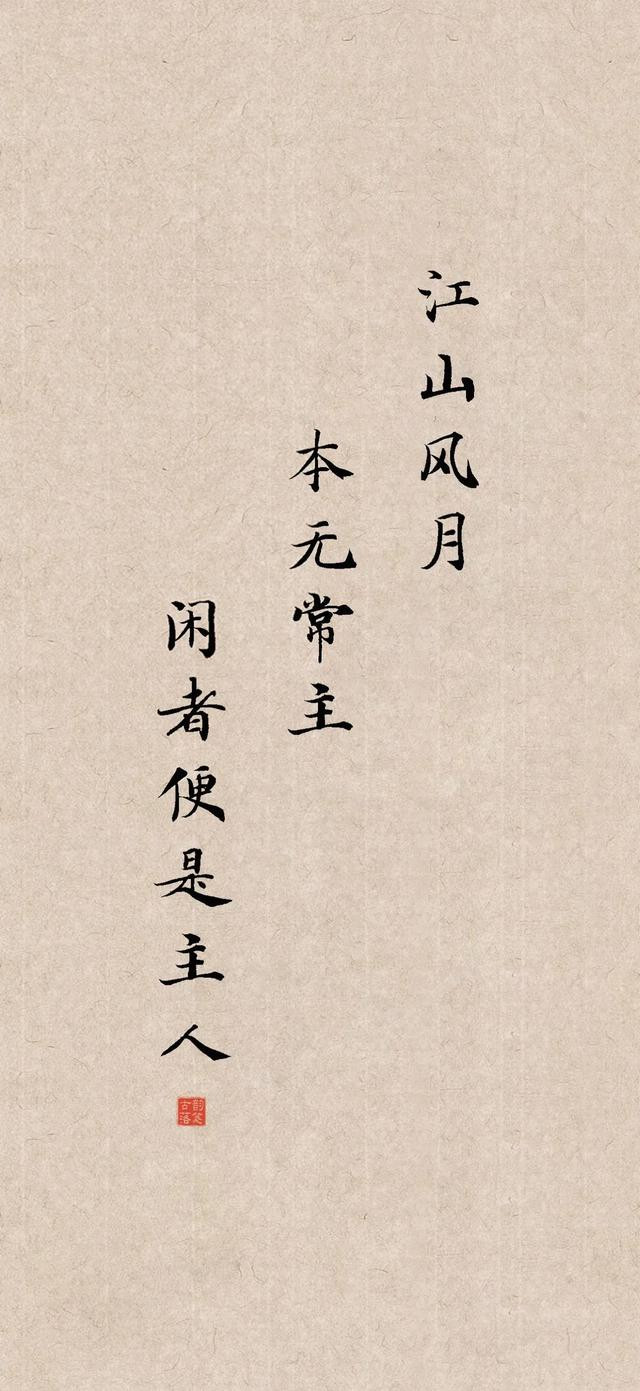 江山风月
本无常主
闲者便是主人